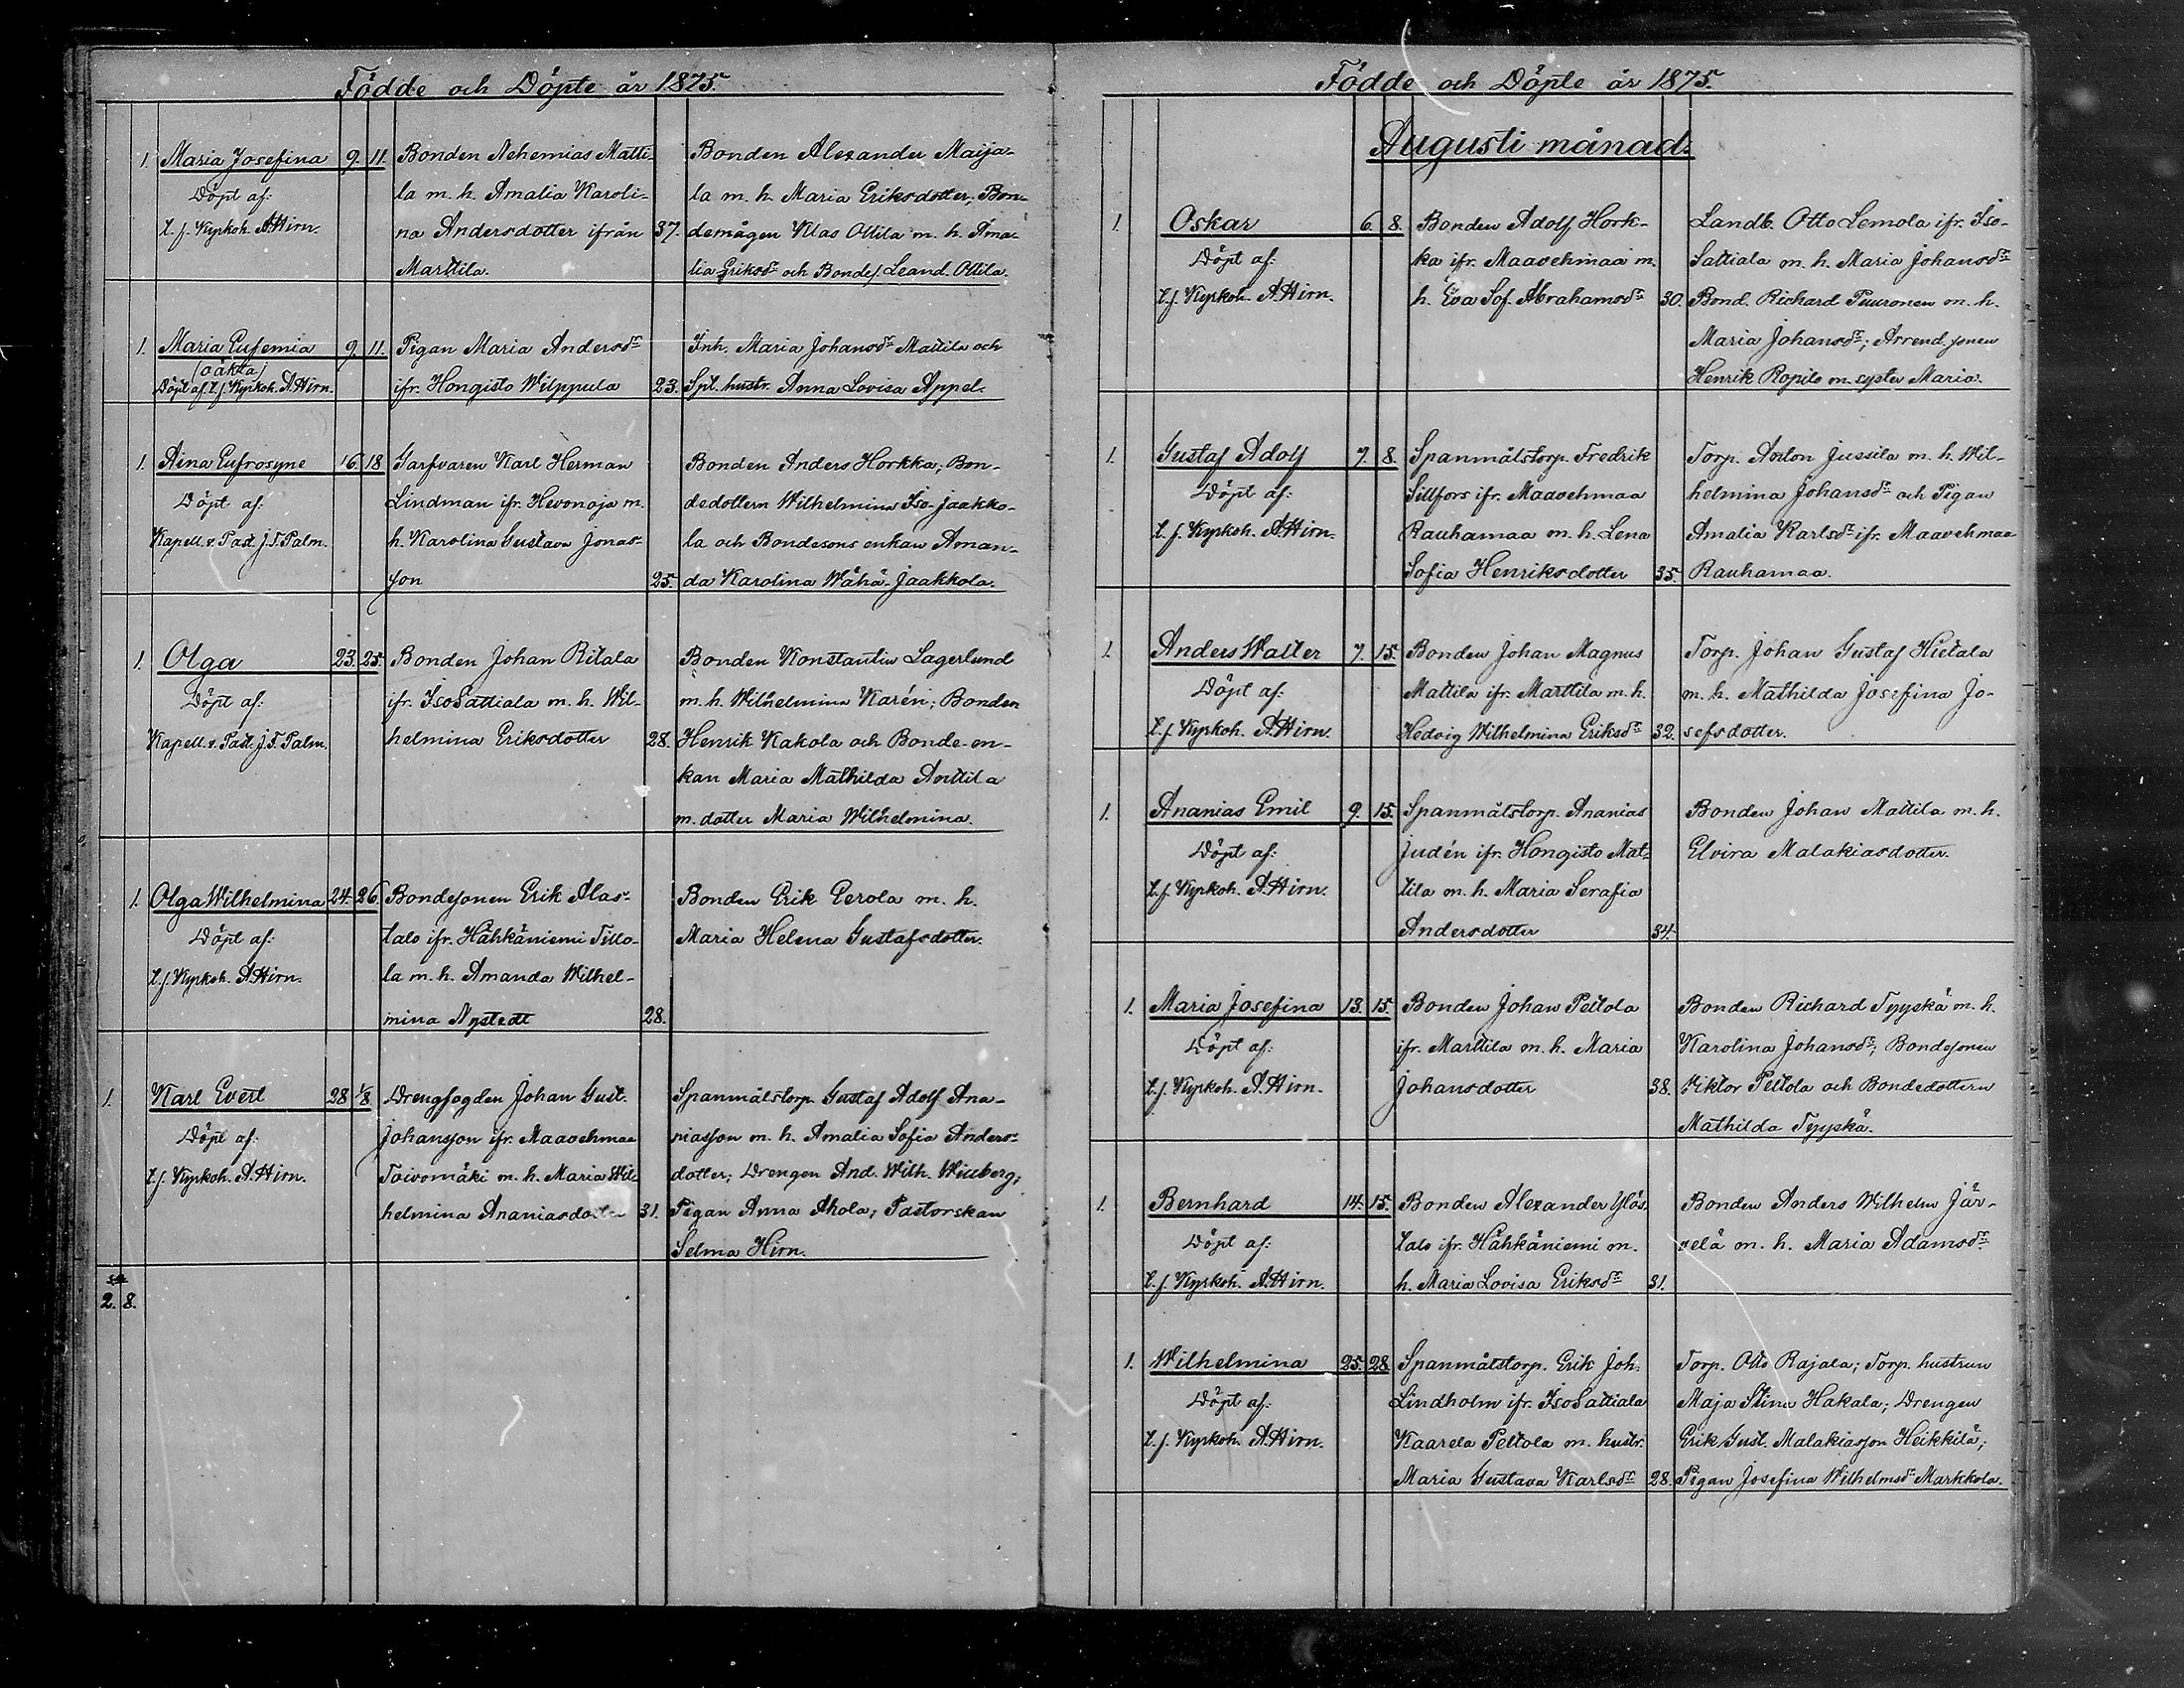 Födde och Döpte år 1875.
1. Maria Josefina 9. 11. Bonden Nehemias Matti- Bonden Alexander Maija-
Döpt af: la m. h. Amalia Karoli- la m. h. Maria Eriksdotter; Bon-
t. f. Kyrkoh. A. Hirn. na Andersdotter ifrån 37. demågen Klas Ottila m. h. Ama-
Marttila. lia Eriksdr och Bondes. Leand. Ottila.
1. Maria Eufemia 9. 11. Pigan Maria Andersdr Inh. Maria Johansdr Mattila och
(oäkta)
Döpt af t. f. Kyrkoh. A. Hirn. ifr. Hongisto Wilppula 23. Spl. hustr. Anna Lovisa Appel.
1. Aina Eufrosyne 16 18 Garfvaren Karl Herman Bonden Anders Horkka; Bon-
Döpt af: Lindman ifr. Hevonoja m. dedottern Wilhelmina Iso-Jaakko-
Kapell. v. Past. J. T. Palm. h. Karolina Gustava Jonas- la och Bondesons enkan Aman-
son 25. da Karolina Wähä-Jaakkola.
1. Olga 23. 25. Bonden Johan Ritala Bonden Konstantin Lagerlund
Döpt af: ifr. IsoSattiala m. h. Wil- m. h. Wilhelmina Karén; Bonden
Kapell. v. Past. J. T. Palm. helmina Eriksdotter 28. Henrik Kakola och Bonde-en-
kan Maria Mathilda Anttila
m. dotter Maria Wilhelmina.
1. Olga Wilhelmina 24. 26. Bondesonen Erik Alas- Bonden Erik Perola m. h.
Döpt af: talo ifr. Hähkäniemi Tillo- Maria Helena Gustafsdotter.
t. f. Kyrkoh. A. Hirn. la m. h. Amanda Wilhel-
mina Nystedt 28.
1. Karl Evert 28 1/8. Drengfogden Johan Gust. Spanmålstorp. Gustaf Adolf Ana-
Döpt af: Johansson ifr. Maavehmaa niasson m. h. Amalia Sofia Anders-
t. f. Kyrkoh. A. Hirn. Toivomäki m. h. Maria Wil- dotter; Drengen And. Wilh. Winberg;
helmina Ananiasdotter 31. Pigan Anna Ahola; Pastorskan
Selma Hirn.
2. 8.
Födde och Döpte år 1875.
Augusti månad.
1. Oskar 6. 8. Bonden Adolf Hork- Landb. Otto Lemola ifr. Iso-
Döpt af: ka ifr. Maavehmaa m. Sattiala m. h. Maria Johansdr
t. f. Kyrkoh. A. Hirn. h. Eva Sof. Abrahamsdr 30. Bond. Richard Puuronen m. h.
Maria Johansdr; Arrend. sonen
Henrik Ropilo m. syster Maria.
1. Gustaf Adolf 7. 8. Spanmålstorp. Fredrik Torp. Anton Jussila m. h. Wil-
Döpt af: Sillfors ifr. Maavehmaa helmina Johansdr och Pigan
t. f. Kyrkoh. A. Hirn. Rauhamaa m. h. Lena Amalia Karlsdr ifr. Maavehmaa
Sofia Henriksdotter 35. Rauhamaa.
1. Anders Walter 7. 15. Bonden Johan Magnus Torp. Johan Gustaf Hietala
Döpt af: Mattila ifr. Marttila m. h. m. h. Mathilda Josefina Jo-
t. f. Kyrkoh. A. Hirn. Hedvig Wilhelmina Eriksdr 32. sefsdotter.
1. Ananias Emil 9. 15. Spanmålstorp. Ananias Bonden Johan Mattila m. h.
Döpt af: Judén ifr. Hongisto Mat- Elvira Malakiasdotter.
t. f. Kyrkoh. A. Hirn. tila m. h. Maria Serafia
Andersdotter 34.
1. Maria Josefina 13. 15. Bonden Johan Peltola Bonden Richard Tyyskä m. h.
Döpt af: ifr. Marttila m. h. Maria Karolina Johansdr; Bondesonen
t. f. Kyrkoh. A. Hirn. Johansdotter 38. Viktor Peltola och Bondedottern
Mathilda Tyyskä.
1. Bernhard 14. 15. Bonden Alexander Ylös- Bonden Anders Wilhelm Jär-
Döpt af: talo ifr. Hähkäniemi m. velä m. h. Maria Adamsdr
t. f. Kyrkoh. A. Hirn. h. Maria Lovisa Eriksdr 31.
1. Wilhelmina 25. 28. Spanmålstorp. Erik Joh. Torp. Otto Rajala; Torp. hustrun
Döpt af: Lindholm ifr. IsoSattiala Maja Stina Hakala; Drengen
t. f. Kyrkoh. A. Hirn. Kaarela Peltola m. hustr. Erik Gust. Malakiasson Heikkilä;
Maria Gustava Karlsdr 28. Pigan Josefina Wilhelmsdr Markkola.